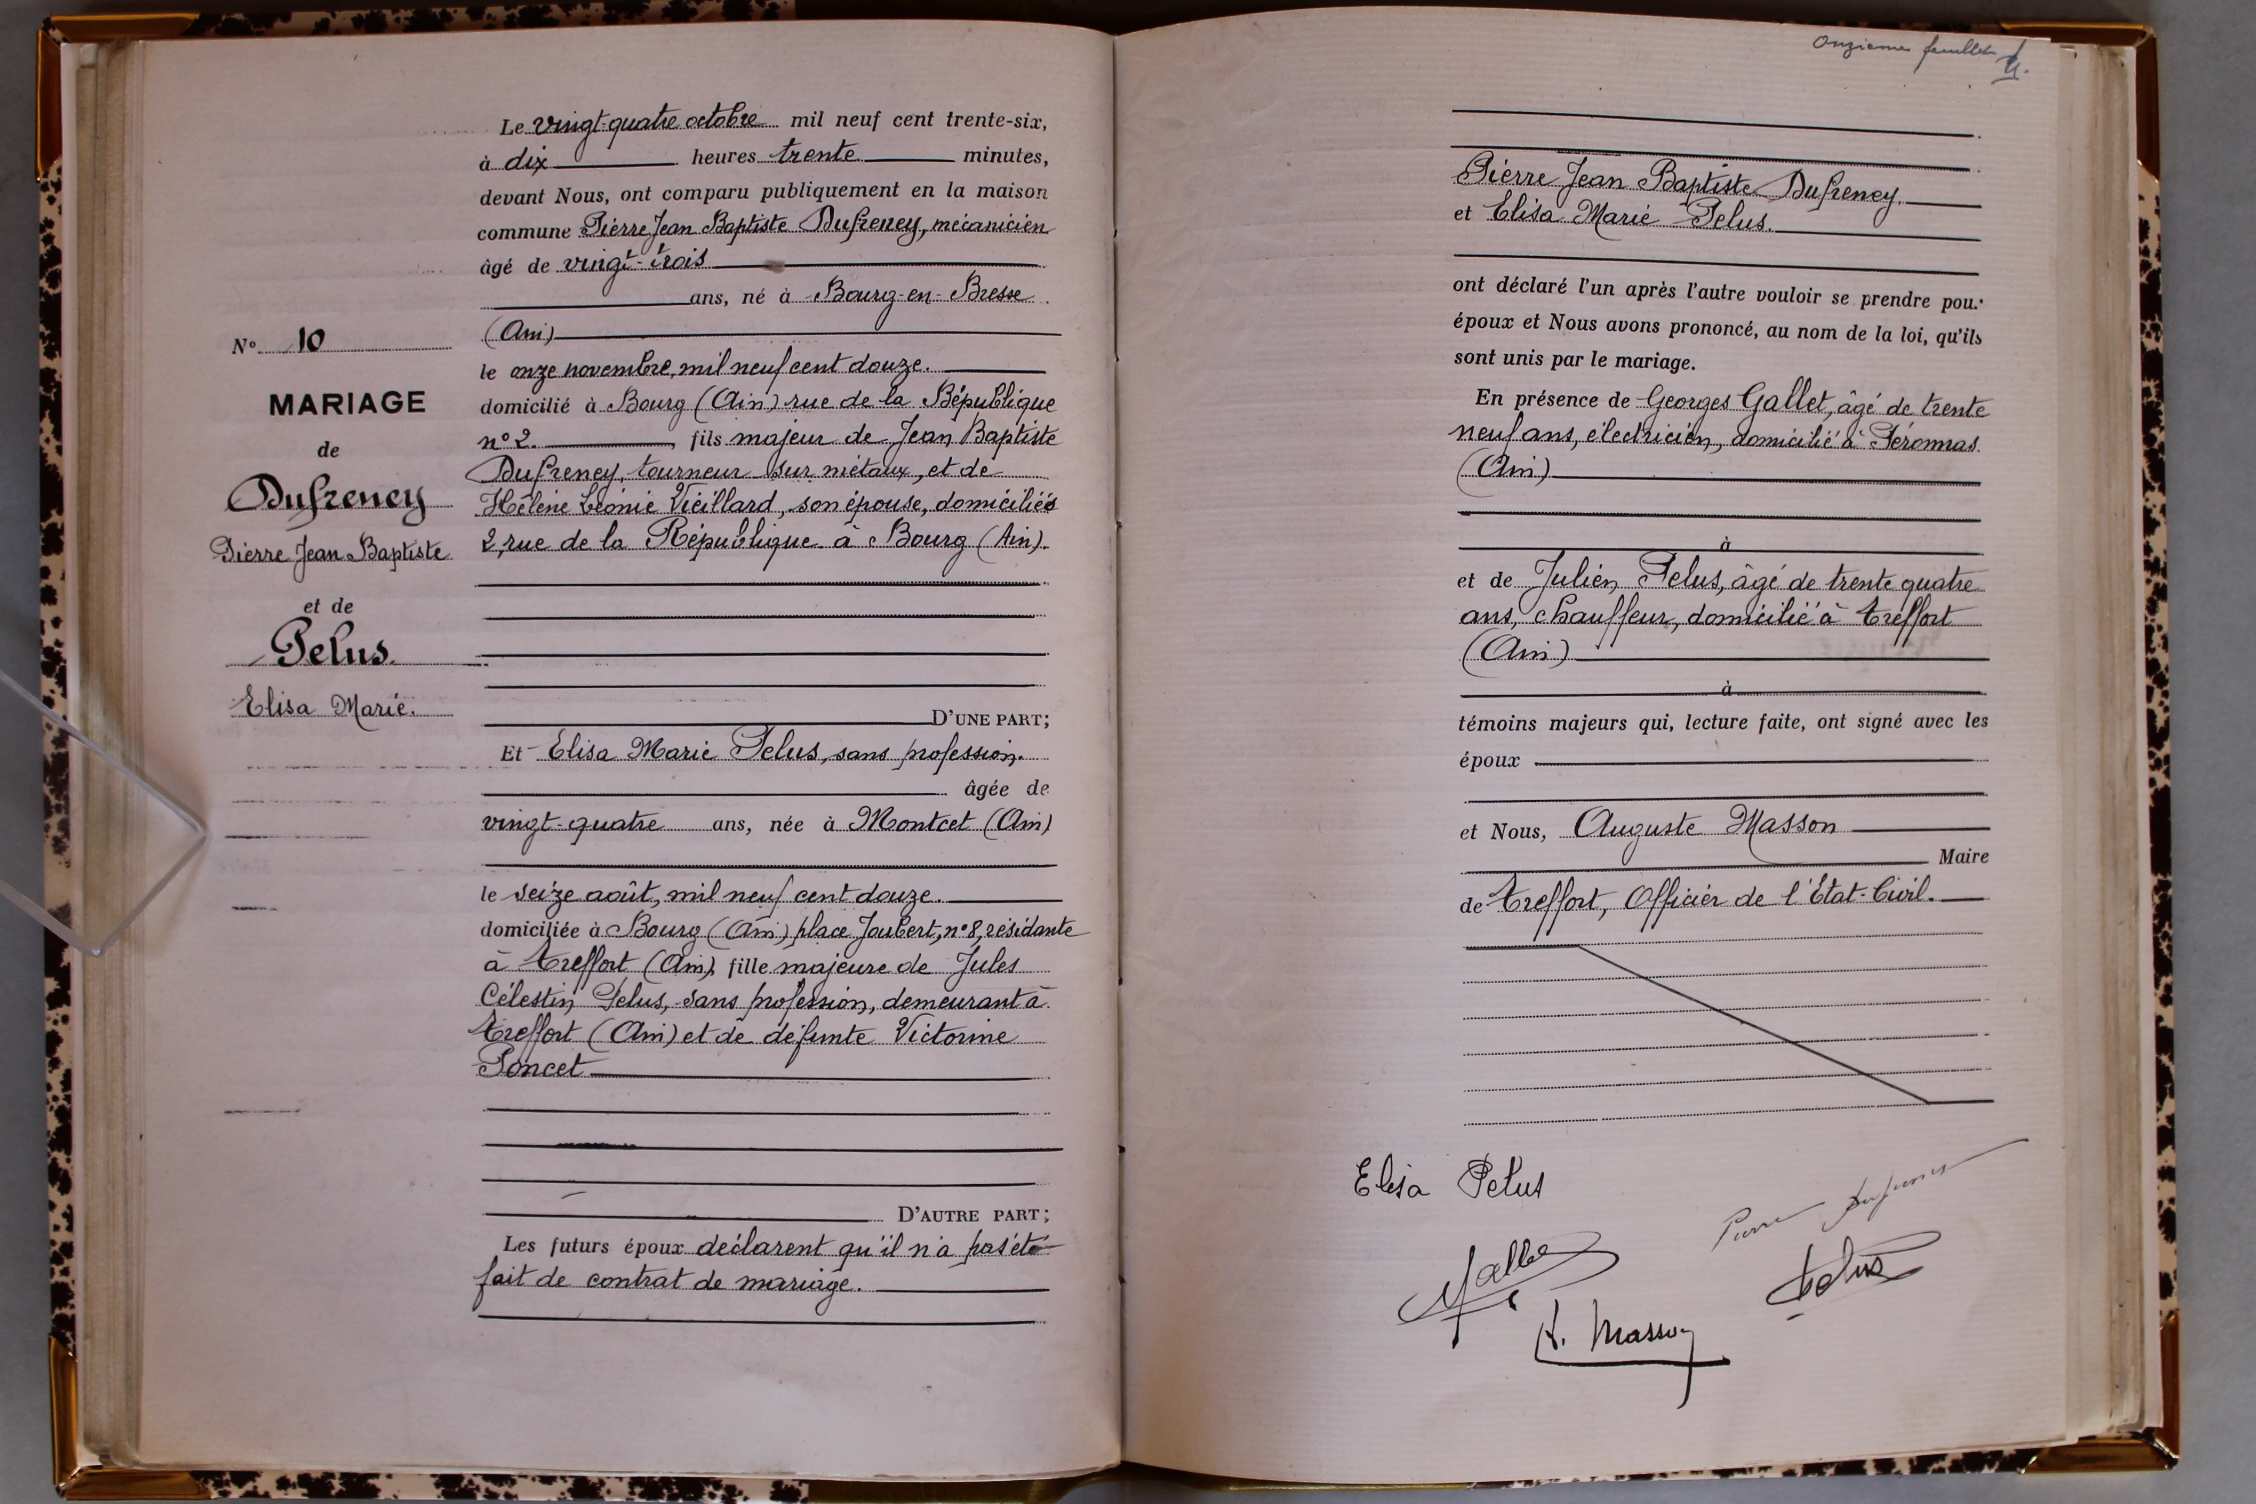 N° 10
MARIAGE
de
Dufreney
Pierre Jean Baptiste
et de
Pelus.
Elisa Marie.
Le vingt-quatre octobre mil neuf cent trente-six,
à dix heures trente minutes,
devant Nous, ont comparu publiquement en la maison
commune Pierre Jean Baptiste Dufreney, mécanicien
âgé de vingt-trois
ans, né à Bourg-en-Bresse
(Ain)
le onze novembre, mil neuf cent douze.
domicilié à Bourg (Ain) rue de la République
n° 2. , fils majeur de Jean Baptiste
Dufreney, tourneur sur métaux, et de
Hélène Léonie Vieillard, son épouse, domiciliés
2, rue de la République à Bourg (Ain).
D'UNE PART;
Et Elisa Marie Pelus, sans profession.
âgée de
vingt-quatre ans, née à Montcet (Ain)
le seize août, mil neuf cent douze.
domiciliée à Bourg (Ain) place Joubert, n° 8, résidante
à Treffort (Ain), fille majeure de Jules
Célestin Pelus, sans profession, demeurant à
Treffort (Ain) et de défunte Victorine
Poncet
D'AUTRE PART;
Les futurs époux déclarent qu'il n'a pas été
fait de contrat de mariage.
Onzième feuillet
Pierre Jean Baptiste Dufreney.
et Elisa Marie Pelus.
ont déclaré l'un après l'autre vouloir se prendre pou.
époux et Nous avons prononcé, au nom de la loi, qu'ils
sont unis par le mariage.
En présence de Georges Gallet, âgé de trente
neuf ans, électricien, domicilié à Péronnas
(Ain)
à
et de Julien Pelus, âgé de trente quatre
ans, chauffeur, domicilié à Treffort
(Ain)
à
témoins majeurs qui, lecture faite, ont signé avec les
époux
et Nous, Auguste Masson
Maire
de Treffort, Officier de l'Etat-Civil.
Elisa Pelus
Pierre Dufreney
Gallet
Pelus
A. Masson